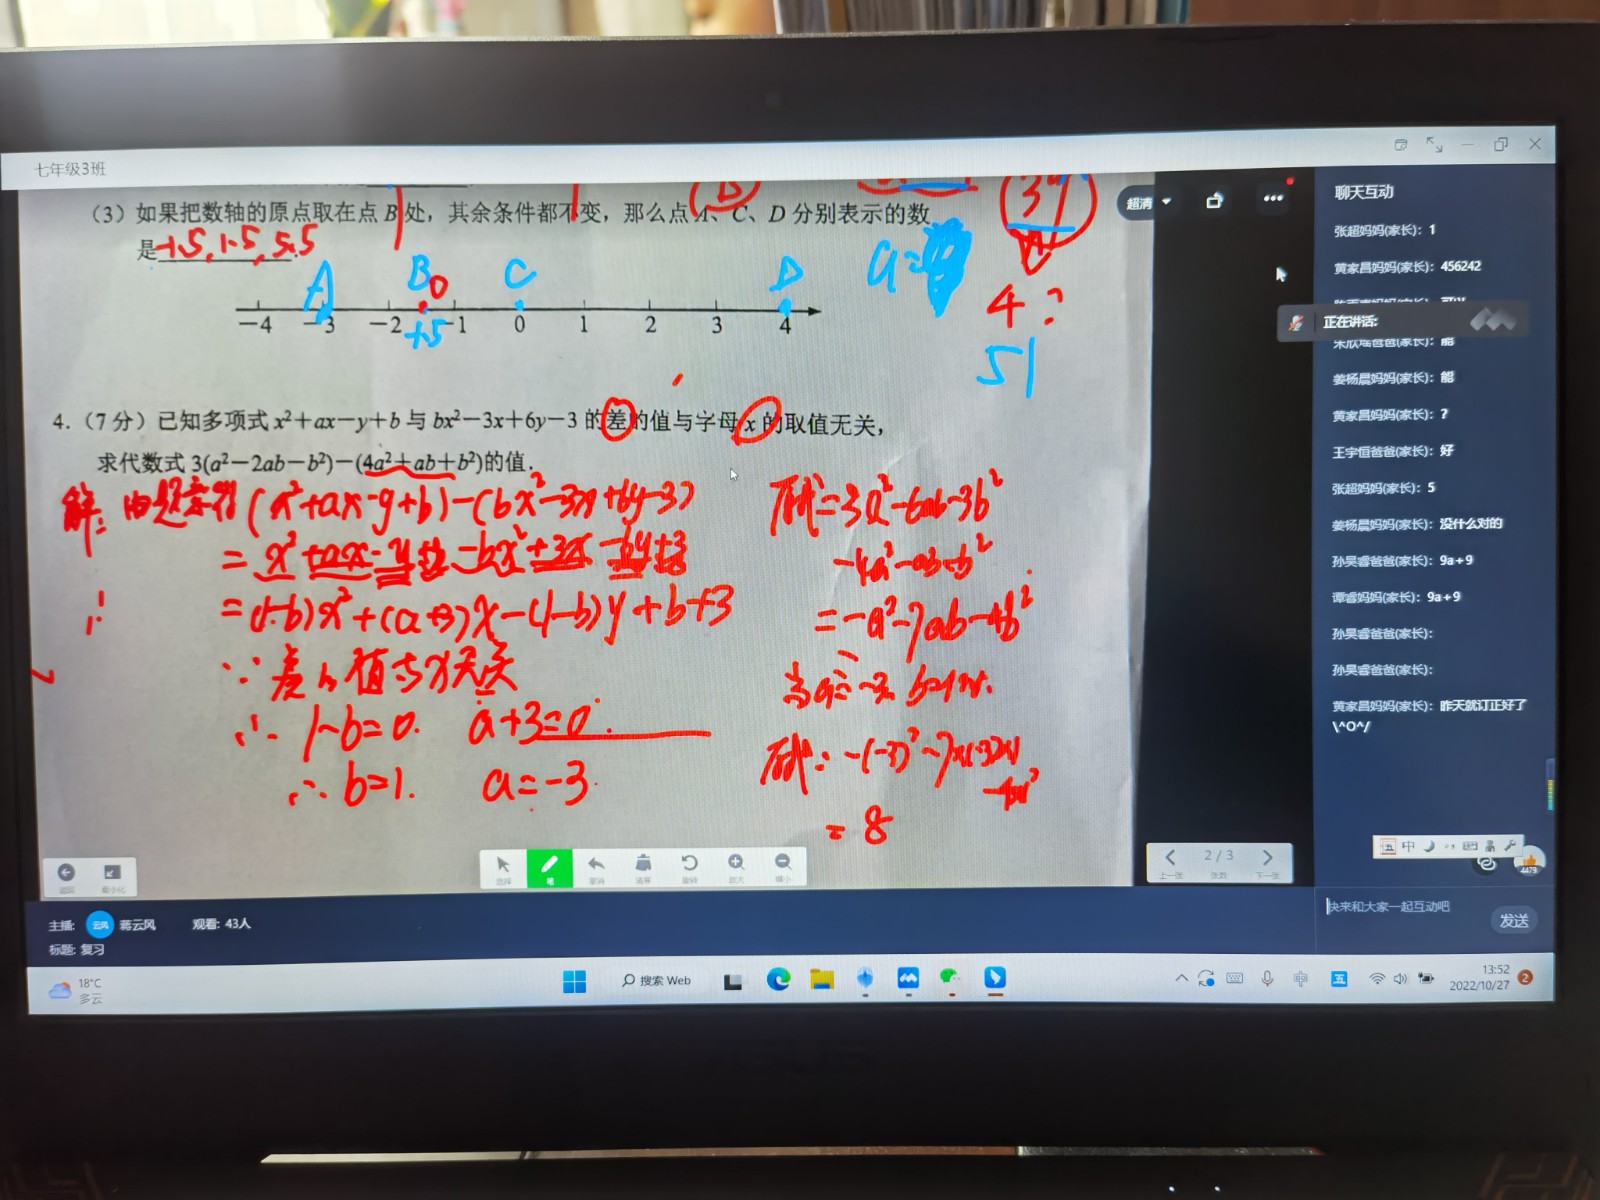 七年级3班
(3) 如果把数轴的原点取在点 B 处，其余条件都不变，那么点 A、C、D 分别表示的数
是 -1.5, 1.5, 5.5
A B O C D
-4 -3 -2 -1 0 1 2 3 4
+5
a=
39
4?
51
4.（7分）已知多项式 x²+ax-y+b 与 bx²-3x+6y-3 的差的值与字母 x 的取值无关，
求代数式 3(a²-2ab-b²)-(4a²+ab+b²)的值.
解: 由题意得 (x²+ax-y+b)-(bx²-3x+6y-3)
= x²+ax-y+b-bx²+3x-6y+3
=(1-b)x²+(a+3)x-(1-b)y+b+3
∵差的值与x无关
∴ 1-b=0. a+3=0.
∴ b=1. a=-3.
原式=3a²-6ab-3b²
-4a²-ab-b²
=-a²-7ab-4b²
当a=-3, b=1时.
原式=-(-3)²-7×(-3)×1
-4×1²
= 8
超清
返回 最小化
选择 笔 撤销 清屏 旋转 放大 缩小
2 / 3
上一张 张数 下一张
聊天互动
张超妈妈(家长)：1
黄家昌妈妈(家长)：456242
正在讲话:
朱欣瑶爸爸(家长)：能
姜杨晨妈妈(家长)：能
黄家昌妈妈(家长)：?
王宇恒爸爸(家长)：好
张超妈妈(家长)：5
姜杨晨妈妈(家长)：没什么对的
孙昊睿爸爸(家长)：9a+9
谭睿妈妈(家长)：9a+9
孙昊睿爸爸(家长)：
孙昊睿爸爸(家长)：
黄家昌妈妈(家长)：昨天就订正好了
\^O^/
五 中
4479
快来和大家一起互动吧
发送
主播: 云风 蒋云风 观看: 43人
标题: 复习
18°C
多云
搜索 Web
中 五
13:52
2022/10/27
2